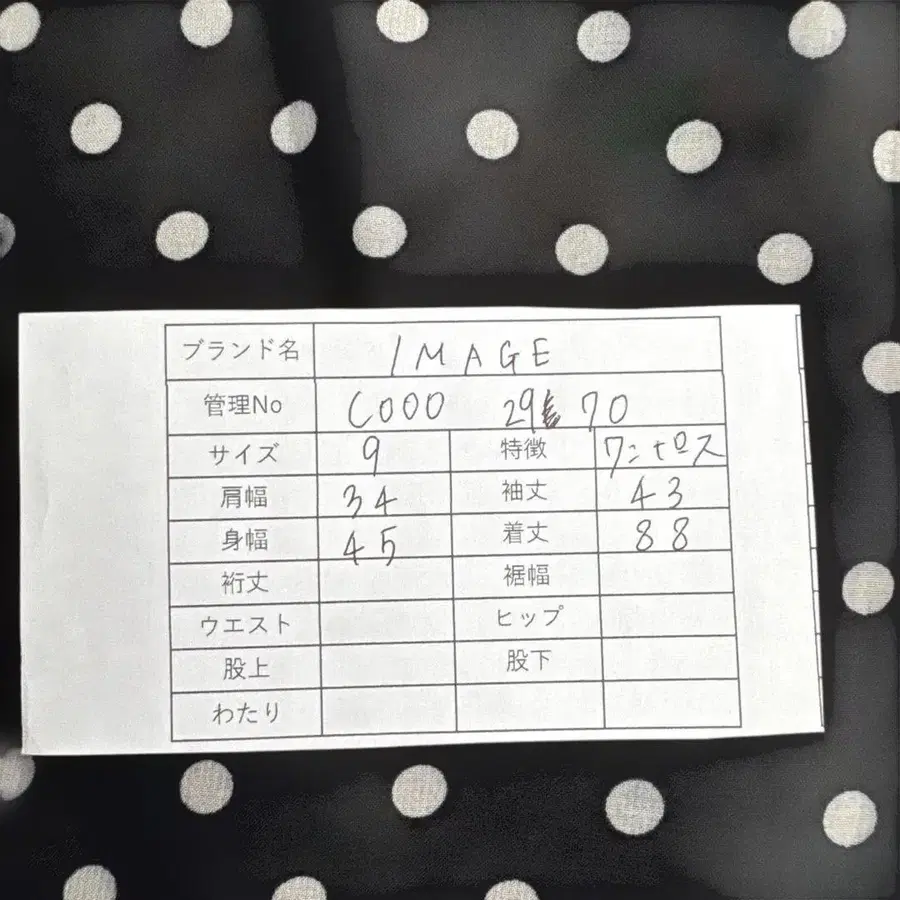 ブランド名 IMAGE
管理No C000 29 70
サイズ 9 特徴 ワンピース
肩幅 34 袖丈 43
身幅 45 着丈 88
裄丈 裾幅
ウエスト ヒップ
股上 股下
わたり